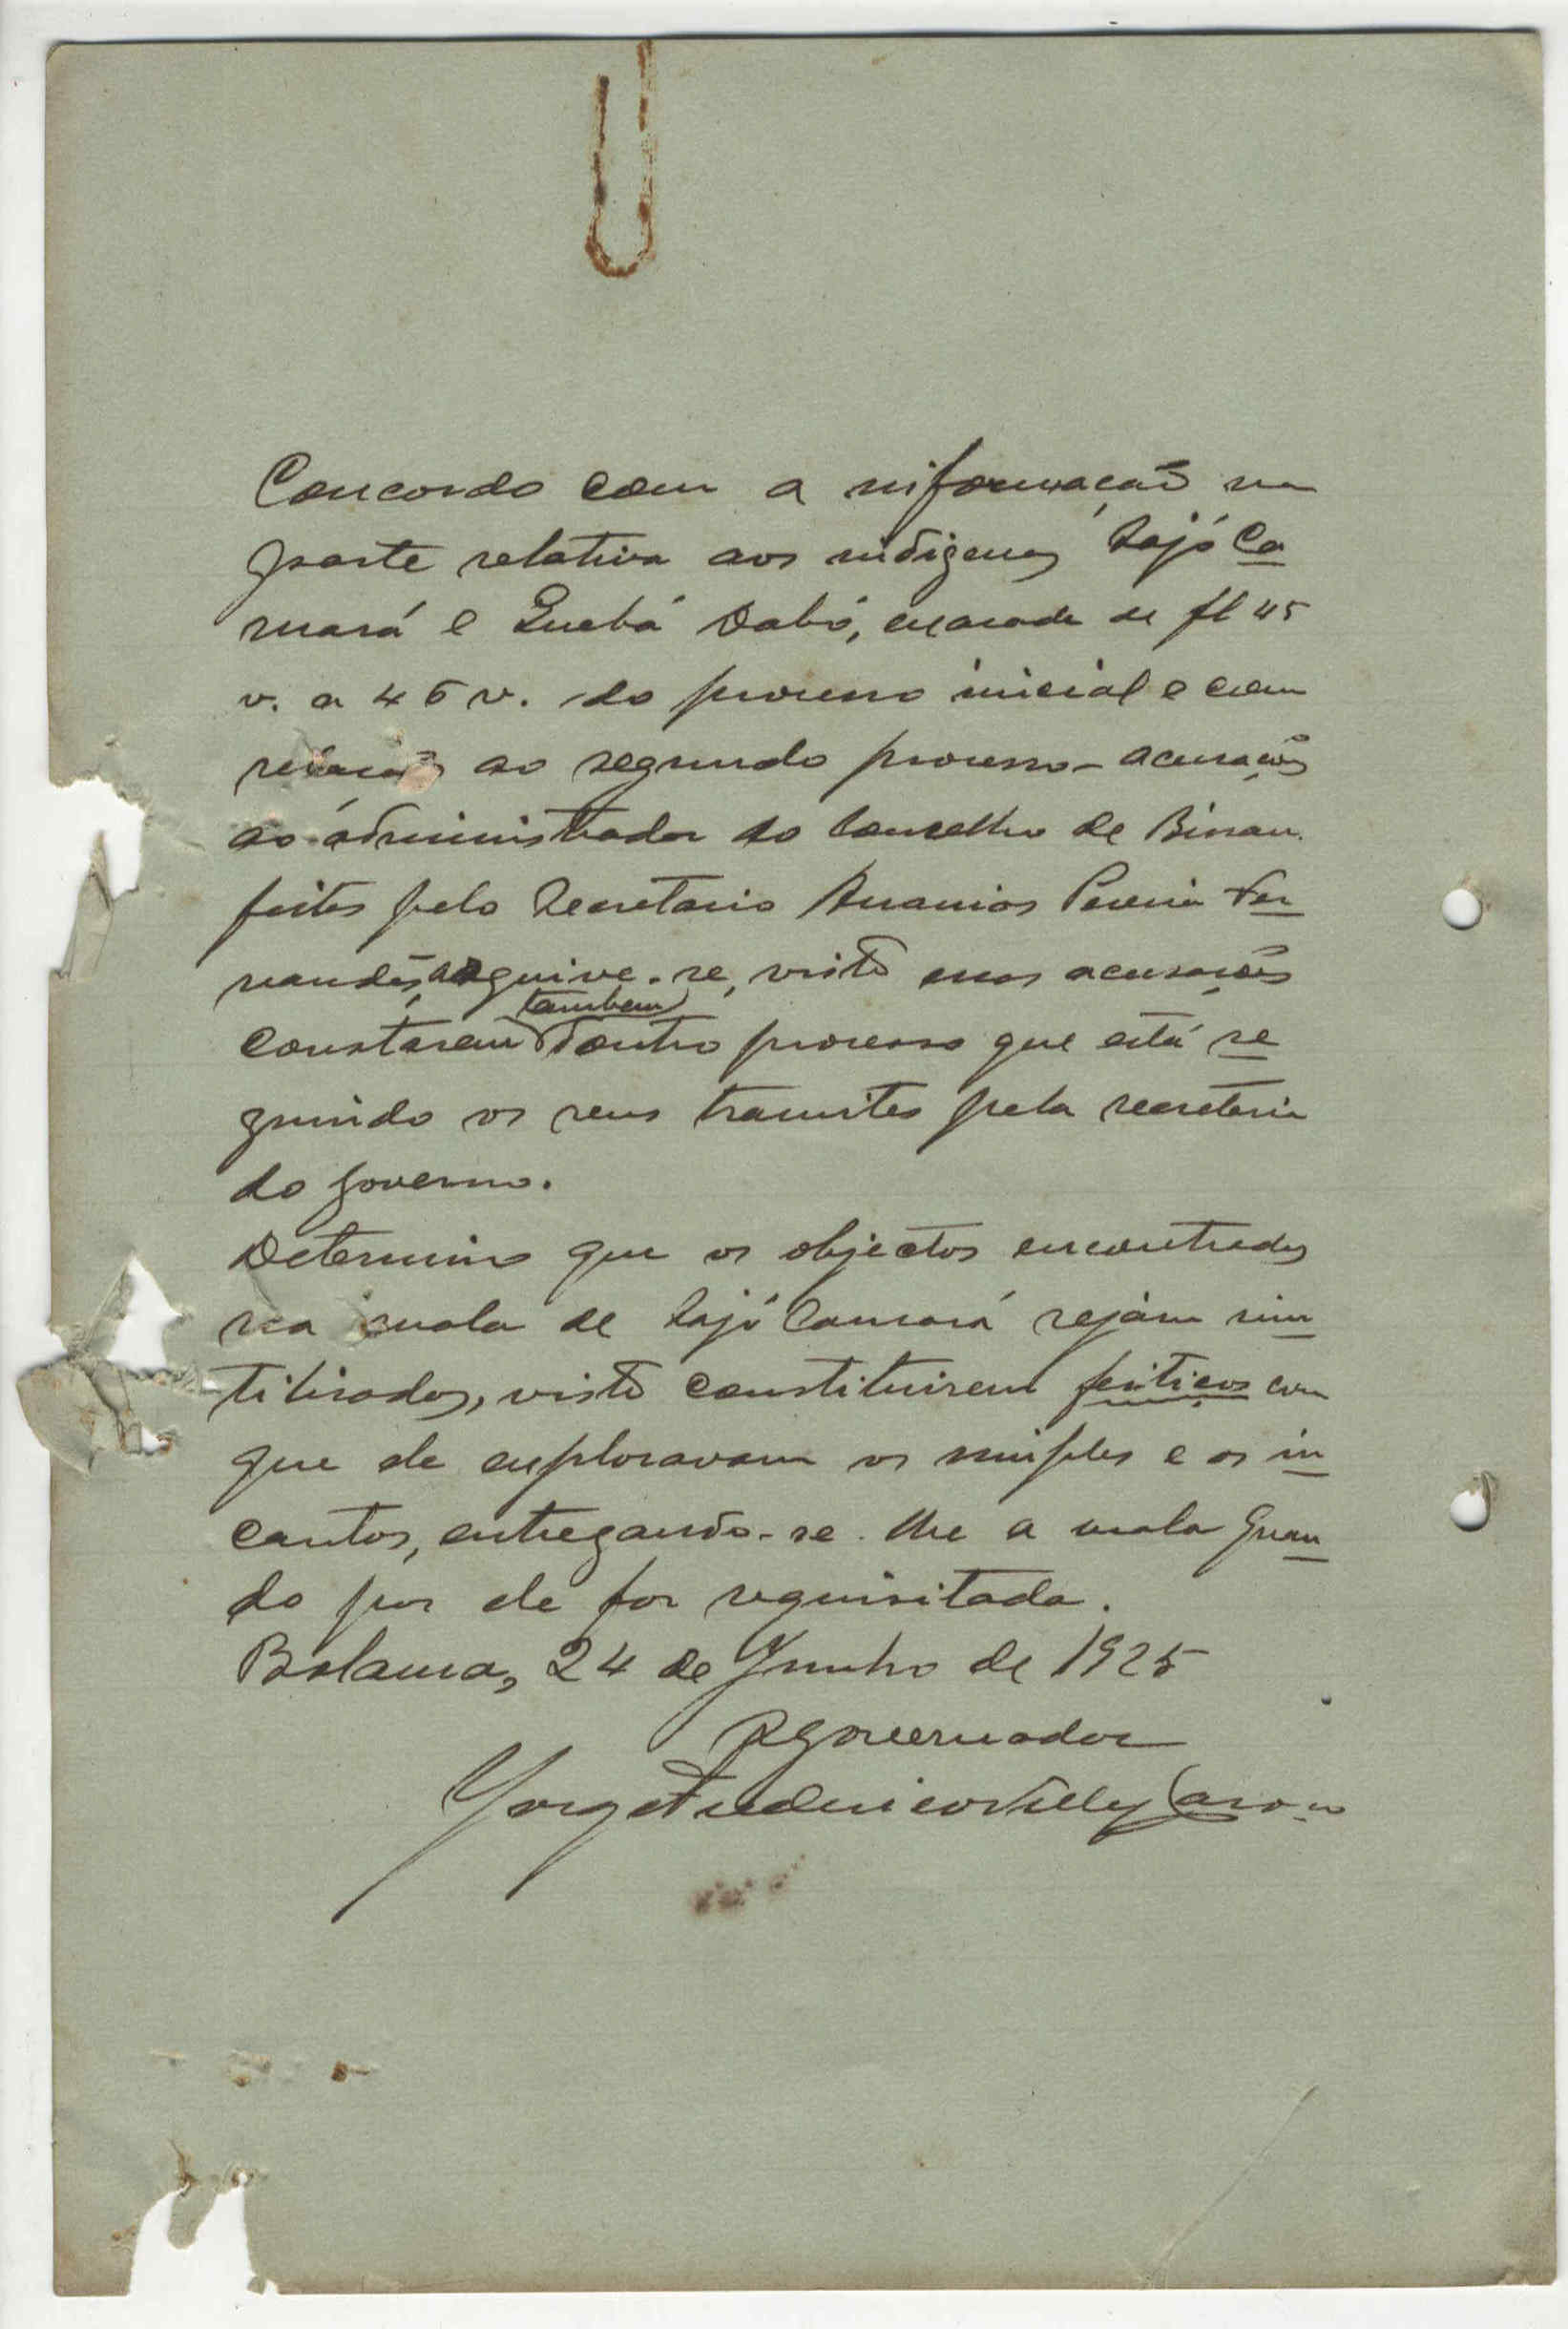 Concordo com a informação na
parte relativa aos indigenas Lajó Ca
mará e Quebá Dabó, exarada de fl 45
v. a 46 v. do processo inicial e com
relação ao segundo processo - acusações
ao administrador do Concelho de Bissau
feitas pelo Secretario Ananias Pereira Fer
nandes, arquive-se, visto essas acusações
constarem tambem doutro processo que está se
guindo os seus tramites pela secretaria
do governo.
Determino que os objectos encontrados
na mala de Lajó Camará sejam inu
tilisados, visto constituirem feitiços com
que ele exploravam os simples e os in
cautos, entregando-se-lhe a mala quan
do por ele for requisitada.
Bolama, 24 de Junho de 1925
O Governador
Jorge Frederico Velez Caroço